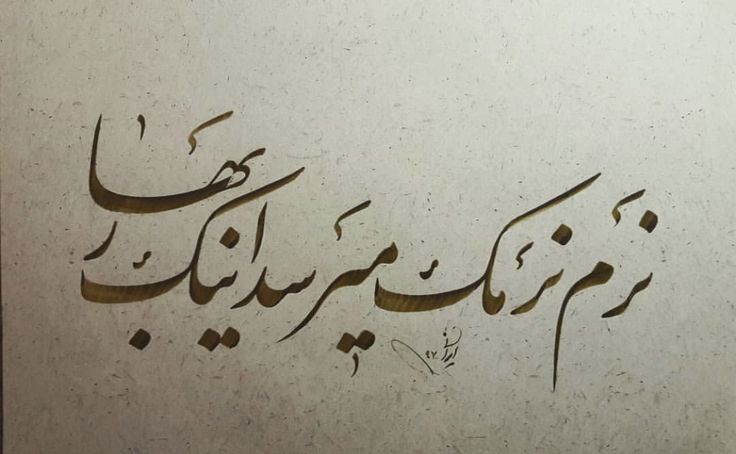 نرم نرمک میرسد اینک بهار
۹۷